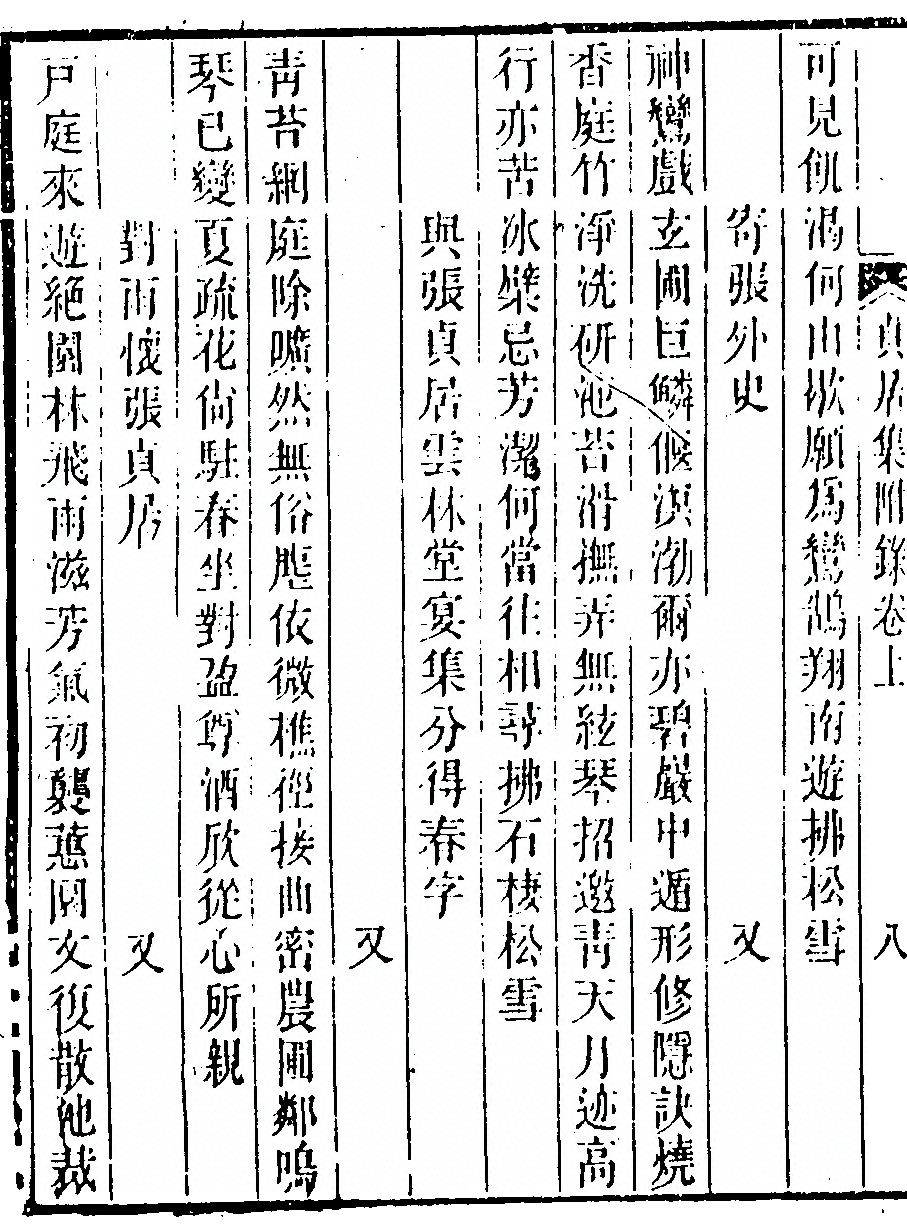 貞居集附錄卷上 八
可見飢渴何由歇願爲鸞鵠翔南遊拂松雪
寄張外史 又
神鸞戲玄圃巨鱗偃溟渤爾亦碧巖中遁形修隱訣燒
香庭竹淨洗研池苔滑撫弄無絃琴招邀青天月迹高
行亦苦冰檗忌芳潔何當往相尋拂石棲松雪
與張貞居雲林堂宴集分得春字
又
青苔網庭除曠然無俗塵依微樵徑接曲密農圃鄰鳴
琴已變夏疏花尙駐春坐對盈尊酒欣從心所親
對雨懷張貞居 又
戸庭來遊絶園林飛雨滋芳氣初襲蕙圓文復散池裁